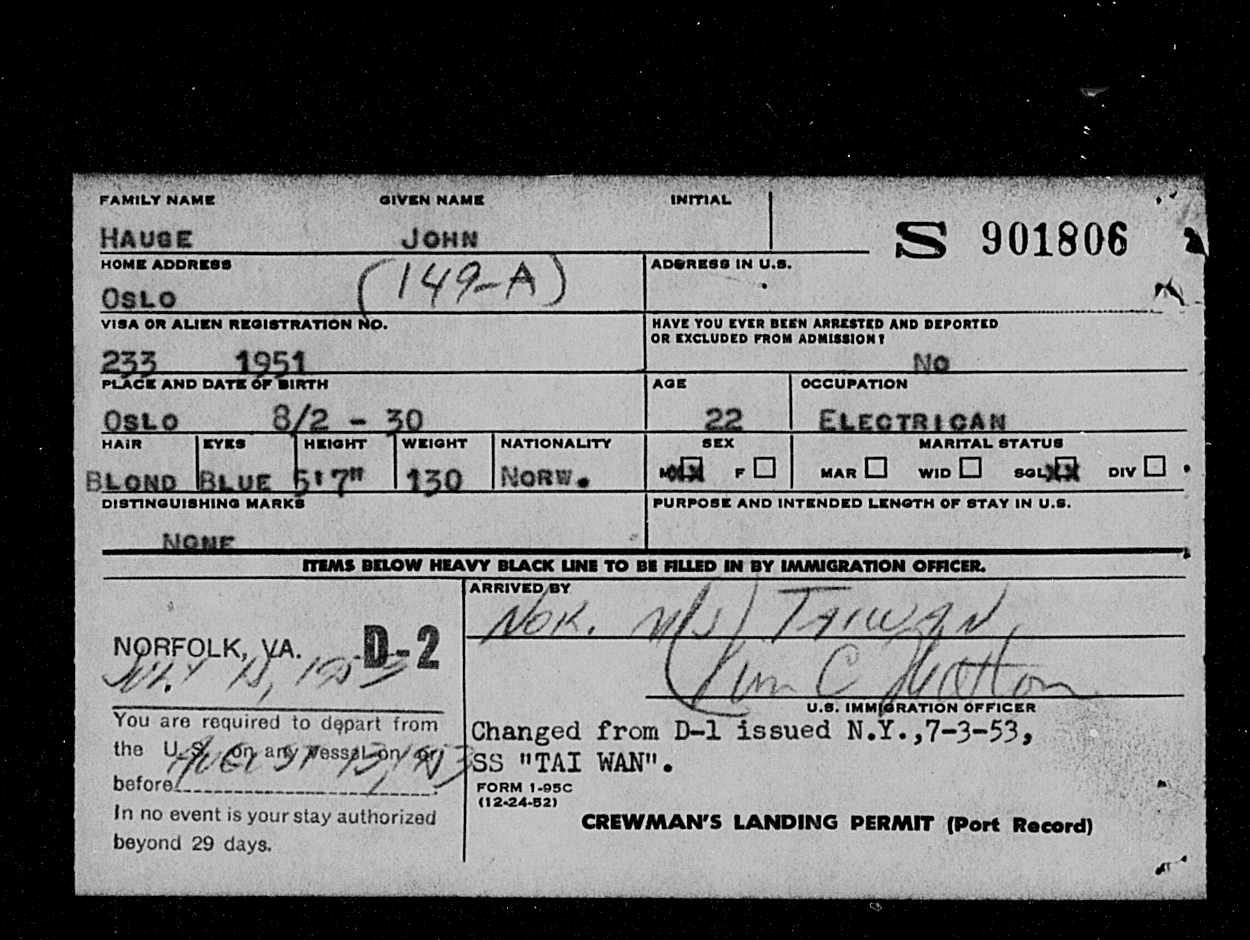 FAMILY NAME GIVEN NAME INITIAL
HAUGE JOHN S 901806
HOME ADDRESS (149-A) ADDRESS IN U.S.
OSLO
VISA OR ALIEN REGISTRATION NO. HAVE YOU EVER BEEN ARRESTED AND DEPORTED
OR EXCLUDED FROM ADMISSION?
233 1951 NO
PLACE AND DATE OF BIRTH AGE OCCUPATION
OSLO 8/2 - 30 22 ELECTRICAN
HAIR EYES HEIGHT WEIGHT NATIONALITY SEX MARITAL STATUS
BLOND BLUE 5'7" 130 NORW. M XX F MAR WID SGL XX DIV
DISTINGUISHING MARKS PURPOSE AND INTENDED LENGTH OF STAY IN U.S.
NONE
ITEMS BELOW HEAVY BLACK LINE TO BE FILLED IN BY IMMIGRATION OFFICER.
ARRIVED BY
NOR. M/S TAIWAN
NORFOLK, VA. D-2
U.S. IMMIGRATION OFFICER
You are required to depart from
the U.S. on any vessel on or
before AUGUST 13, 1953
In no event is your stay authorized
beyond 29 days.
Changed from D-1 issued N.Y.,7-3-53,
SS "TAI WAN".
FORM I-95C
(12-24-52)
CREWMAN'S LANDING PERMIT (Port Record)